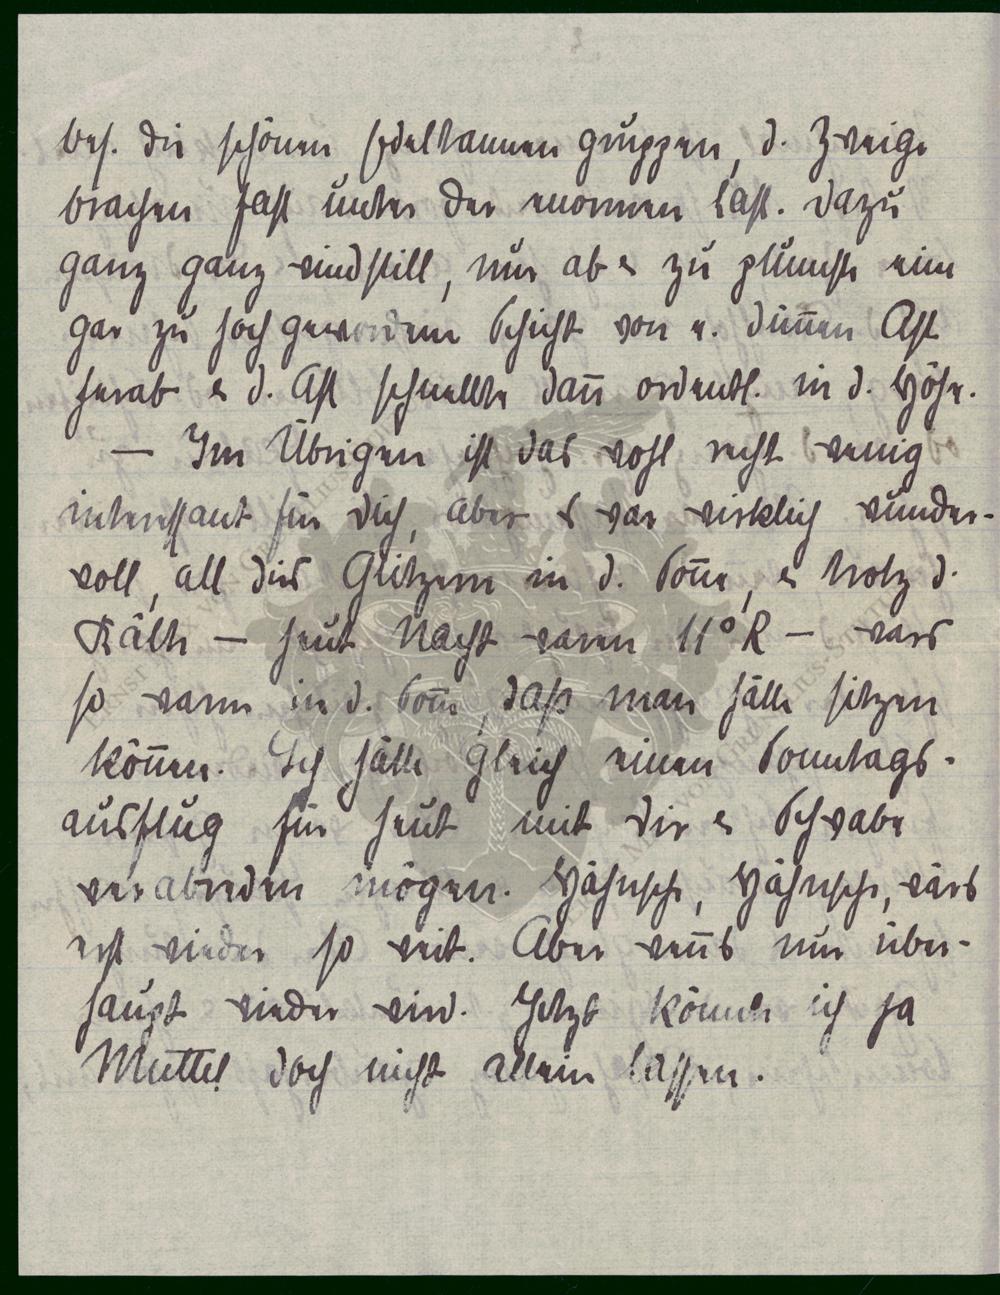 bes. die schönen Edeltannengruppen, d. Zweige
brachen fast unter der enormen Last. Dazu
ganz ganz windstill, nur ab & zu plumste eine
gar zu hoch gewordene Schicht von e. dünnen Ast
herab & d. Ast schnellte dann ordentl. in d. Höhe.
— Im Übrigen ist das wohl recht wenig
interessant für Dich, aber es war wirklich wunder-
voll, all dies Glitzern in d. Sonne, & trotz d.
Kälte — heut Nacht waren 11° R — wars
so warm in d. Sonne, daß man hätte sitzen
können. Ich hätte gleich einen Sonntags-
ausflug für heut mit Dir & Schwabe
verabreden mögen. Hähnsche, Hähnsche, wärs
erst wieder so weit. Aber wenns nur über-
haupt wieder wird. Jetzt könnte ich ja
Muttel doch nicht allein lassen.